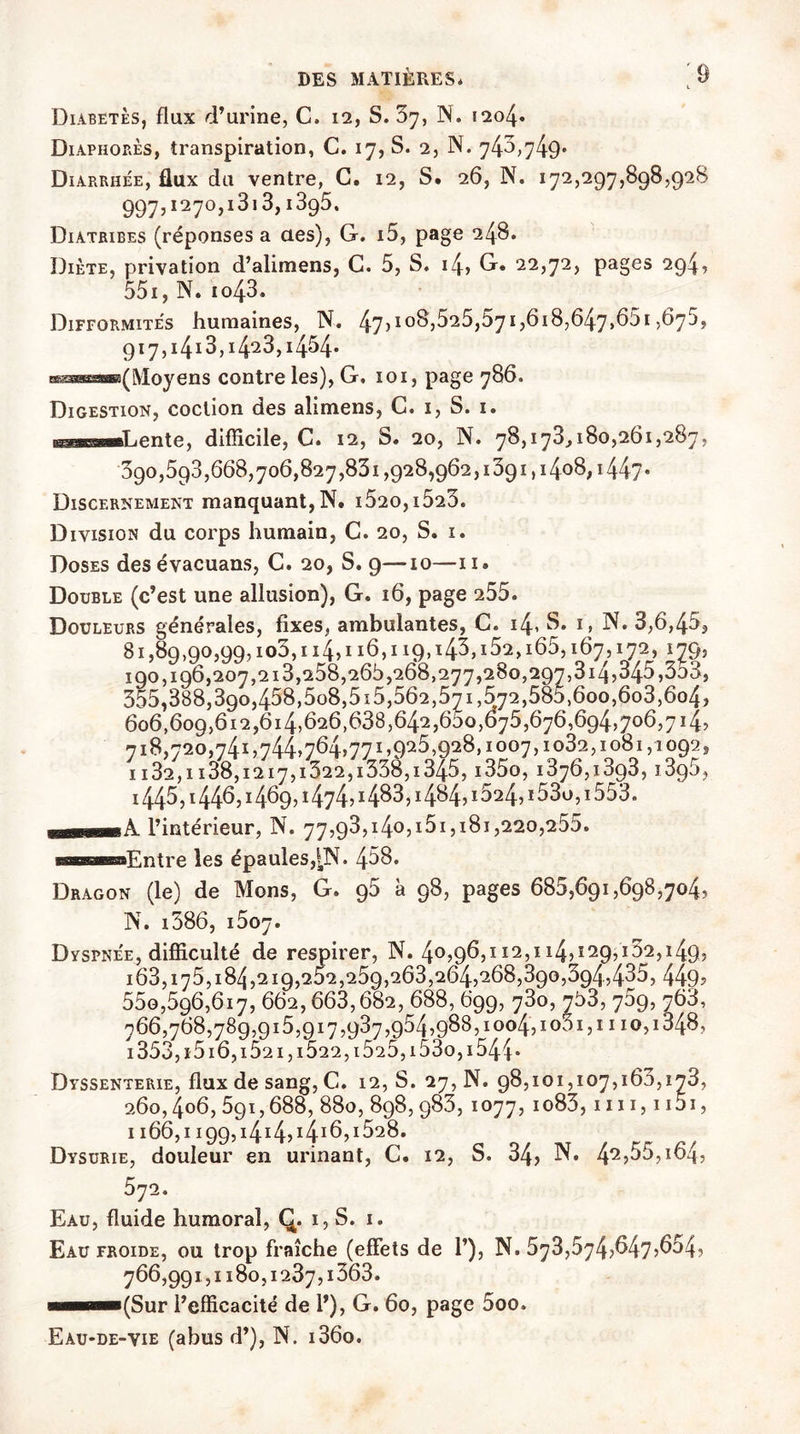 DES MATIÈRES. 9
DIABETÈS, flux d'urine, C. 12, S. 37, N. 1204.
DIAPHORÈS, transpiration, C. 17, S. 2, N. 743,749.
DIARRHÉE, flux du ventre, C. 12, S. 26, N. 172,297,898,928
997,1270,1313,1395.
DIATRIBES (réponses a des), G. 15, page 248.
DIÈTE, privation d'alimens, C. 5, S. 14, G. 22,72, pages 294,
551, N. 1043.
DIFFORMITÉS humaines, N. 47,108,525,571,618,647,651,675,
917,1413,1423,1454.
(Moyens contre les), G. 101, page 786.
DIGESTION, coction des alimens, C. 1, S. 1.
Lente, difficile, C. 12, S. 20, N. 78,173,180,261,287,
390,593,668,706,827,831,928,962,1391,1408,1447.
DISCERNEMENT manquant, N. 1520,1523.
DIVISION du corps humain, C. 20, S. 1.
DOSES des évacuans, C. 20, S. 9—10—11.
DOUBLE (c'est une allusion), G. 16, page 255.
DOULEURS générales, fixes, ambulantes, C. 14, S. 1, N. 3,6,45,
81,89,90,99,103,114,116,119,143,152,165,167,172, 179,
190,196,207,213,258,265,268,277,280,297,314,345,353,
355,388,390,458,508,515,562,571,572,585,600,603,604,
606,609,612,614,626,638,642,650,675,676,694,706,714,
718,720,741,744,764,771,925,928,1007,1032,1081,1092,
1132,1138,1217,1322,1338,1345, 1350, 1376,1393, 1395,
1445,1446,1469,1474,1483,1484,1524,1530,1553.
A l'intérieur, N. 77,93,140,151,181,220,255.
Entre les épaules, N. 458.
DRAGON (le) de Mons, G. 95 à 98, pages 685,691,698,704,
N. 1386, 1507.
DYSPNÉE, difficulté de respirer, N. 40,96,112,114,129,132,149,
163,175,184,219,252,259,263,264,268,390,394,435, 449,
550,596,617, 662, 663, 682, 688, 699, 730, 753, 759, 763,
766,768,789,915,917,937,954,988,1004,1031,1110,1348,
1353,1516,1521,1522,1525,1530,1544.
DYSSENTERIE, flux de sang, C. 12, S. 27, N. 98,101,107,163,173,
260, 406, 591, 688, 880, 898, 983, 1077, 1083, 1111, 1151,
1166,1199,1414,1416,1528.
DYSURIE, douleur en urinant, C. 12, S. 34, N. 42,55,164,
572.
EAU, fluide humoral, Q. 1, S. 1.
EAU FROIDE, ou trop fraîche (effets de l'), N. 573,574,647,654,
766,991,1180,1237,1363.
(Sur l'efficacité de l'), G. 60, page 500.
EAU-DE-VIE (abus d'), N. 1360.